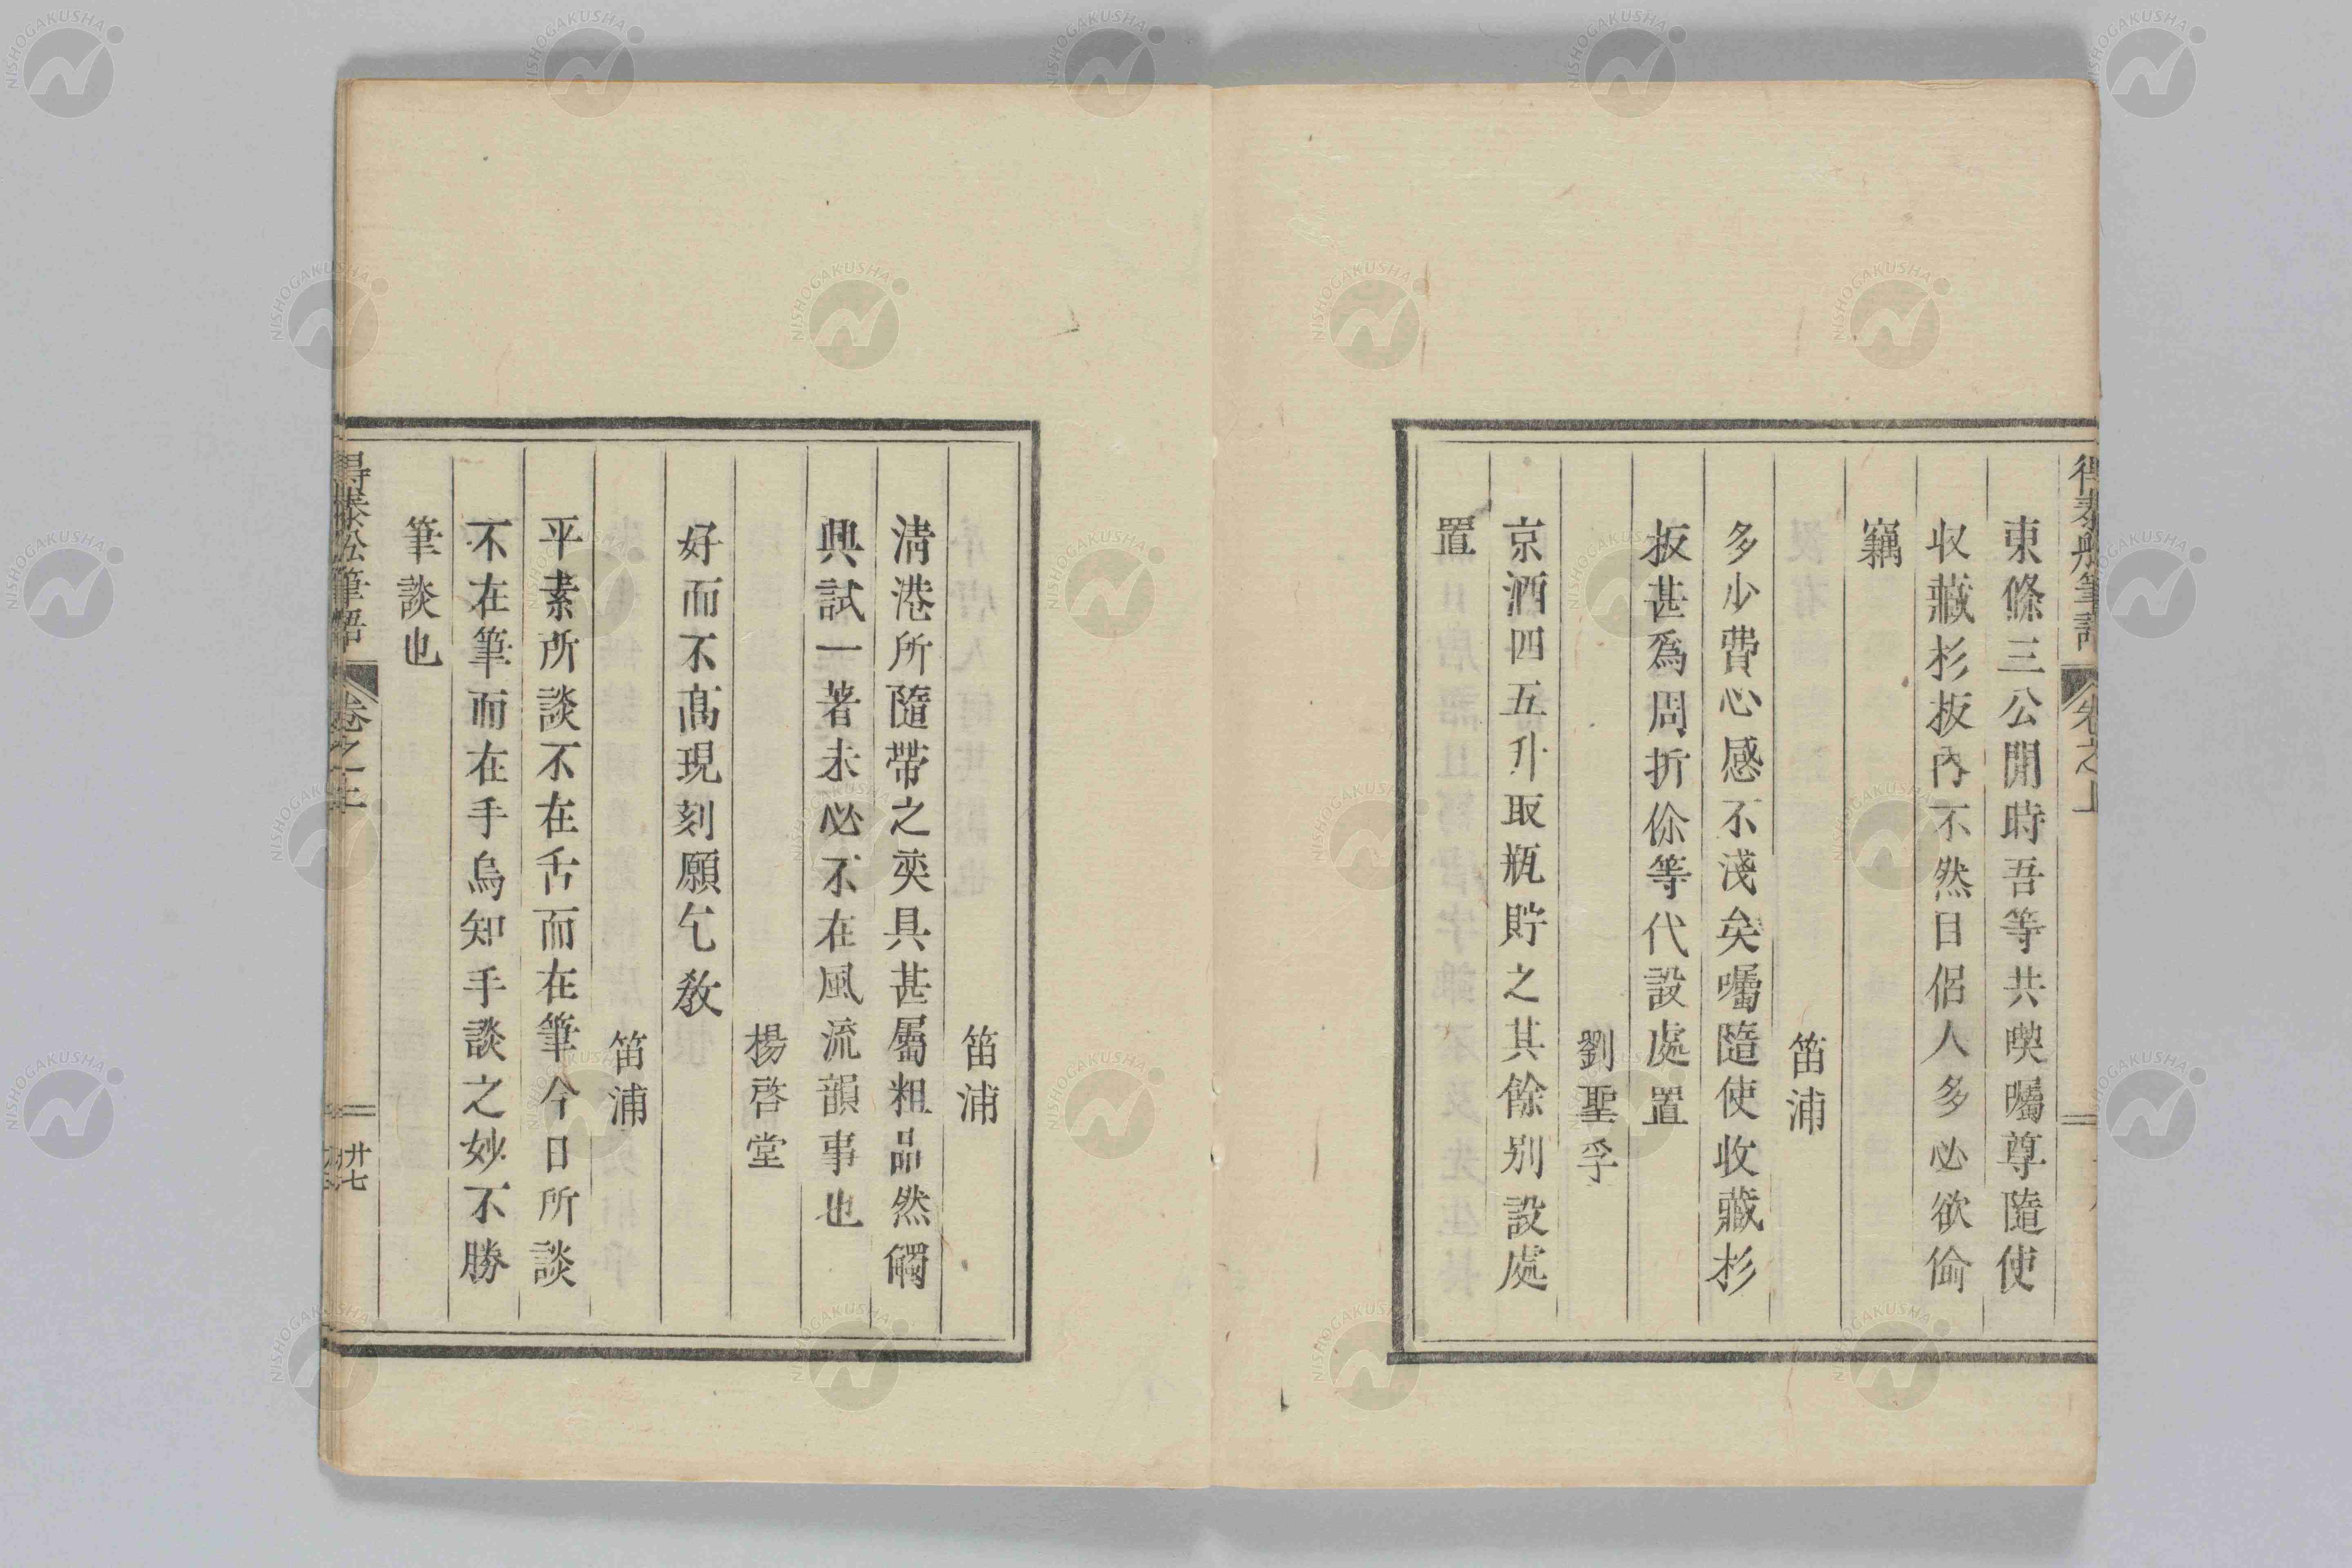 東條三公閒時吾等共喫囑尊隨使
収藏杉板內不然日侶人多必欲偷
竊
笛浦
多少費心感不淺矣囑隨使收藏杉
板甚爲周折你等代設處置
劉聖孚
京酒四五升取瓶貯之其餘別設處
置
笛浦
淸港所隨帶之奕具甚屬粗品然髑
興試一著未必不在風流韻事也
楊啓堂
好而不高現刻願乞教
笛浦
平素所談不在舌而在筆今日所談
不在筆而在手烏知手談之妙不勝
筆談也
得泰船筆語
卷之上
廿七
NISHOGAKUSHA